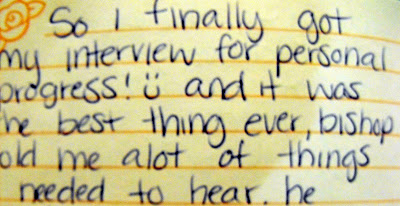 So I finally got
my interview for personal
progress! ü and it was
he best thing ever, bishop
old me alot of things
needed to hear. he